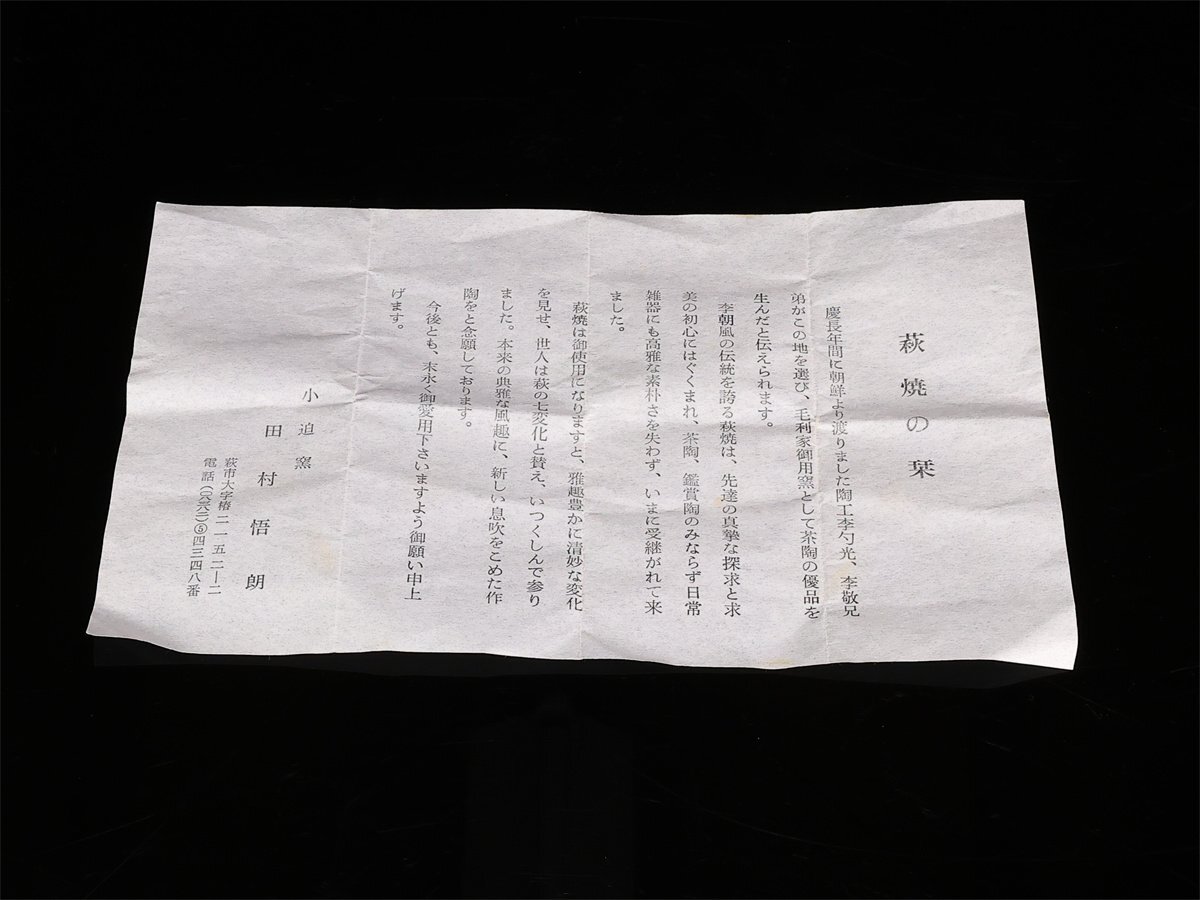 萩焼の栞
慶長年間に朝鮮より渡りました陶工李勺光、李敬兄
弟がこの地を選び、毛利家御用窯として茶陶の優品を
生んだと伝えられます。
李朝風の伝統を誇る萩焼は、先達の真摯な探求と求
美の初心にはぐくまれ、茶陶、鑑賞陶のみならず日常
雑器にも高雅な素朴さを失わず、いまに受継がれて来
ました。
萩焼は御使用になりますと、雅趣豊かに清妙な変化
を見せ、世人は萩の七変化と賛え、いつくしんで参り
ました。本来の典雅な風趣に、新しい息吹をこめた作
陶をと念願しております。
今後とも、末永く御愛用下さいますよう御願い申上
げます。
小迫窯
田村悟朗
萩市大字椿二一五二―二
電話(〇八三八二)⑤四三四八番